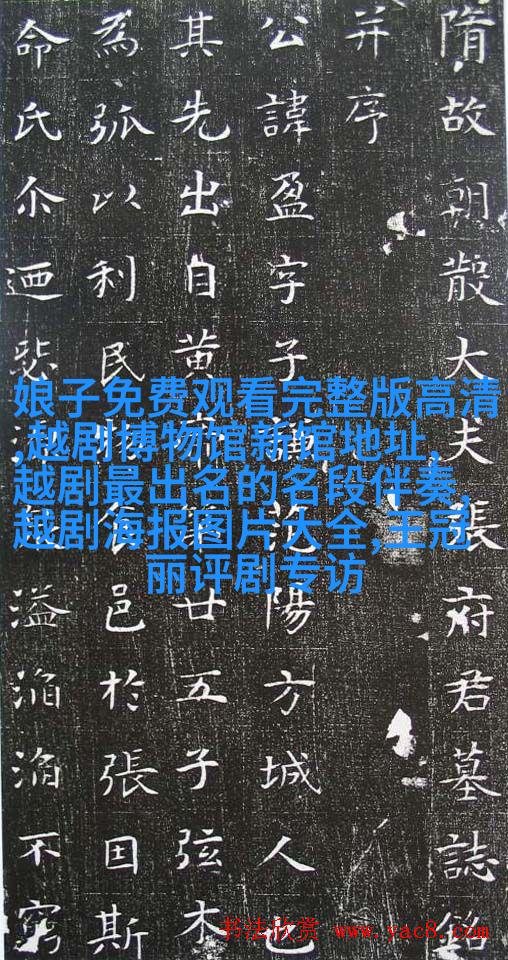 隋故朝散大夫張府君墓誌銘
并序
公諱盈字子范陽方城人也
其先出自黄帝第廿五子弦木
為弧以利民食邑於張因斯
命氏尒迺溢滔滔不窮
娘子免费观看完整版高清
,越剧博物馆新馆地址,
越剧最出名的名段伴奏,
越剧海报图片大全,王冠
丽评剧专访
书法欣赏 www.yac8.com